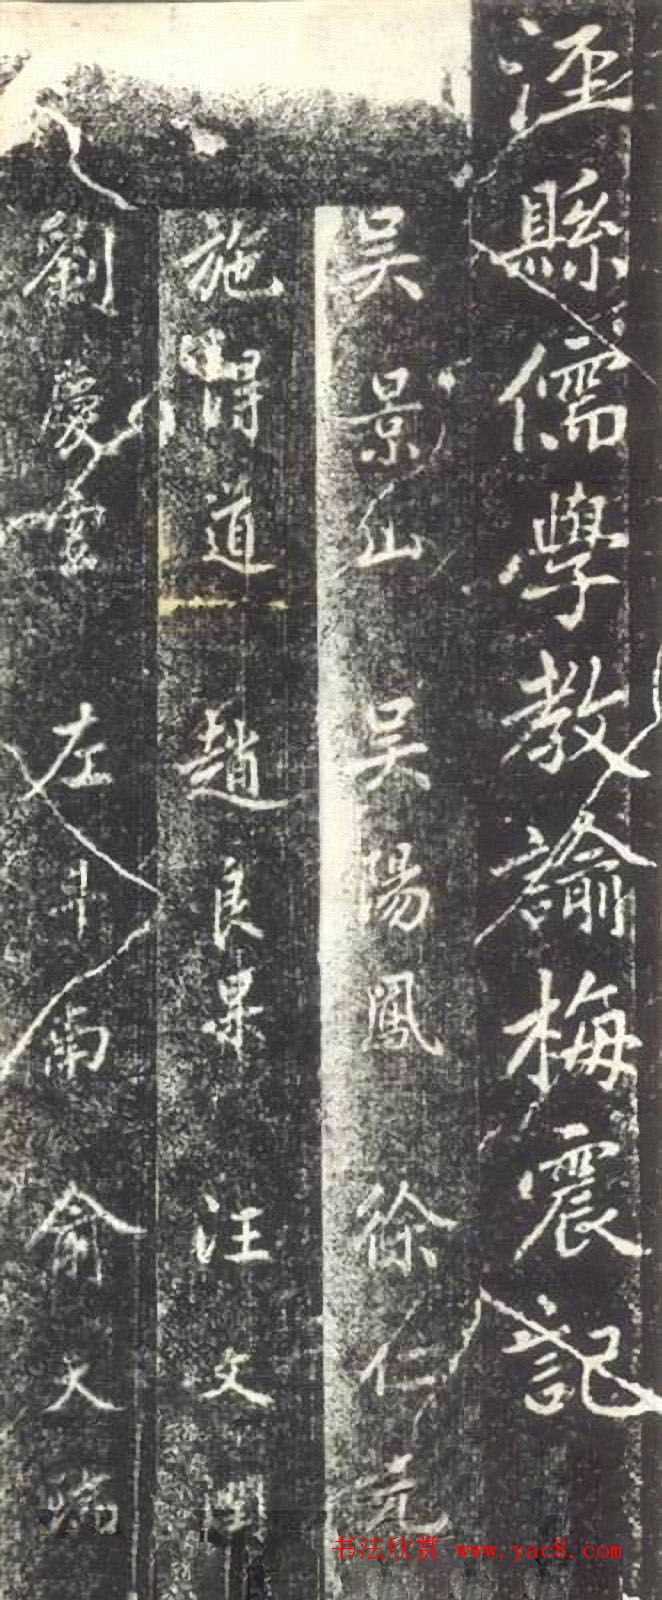 泾縣儒學教諭梅震記
吴景仙 吴陽鳳 徐仁元
施得道 趙良果 汪文閏
劉慶雲 左斗南 俞大瑞
书法欣赏 www.yac8.com